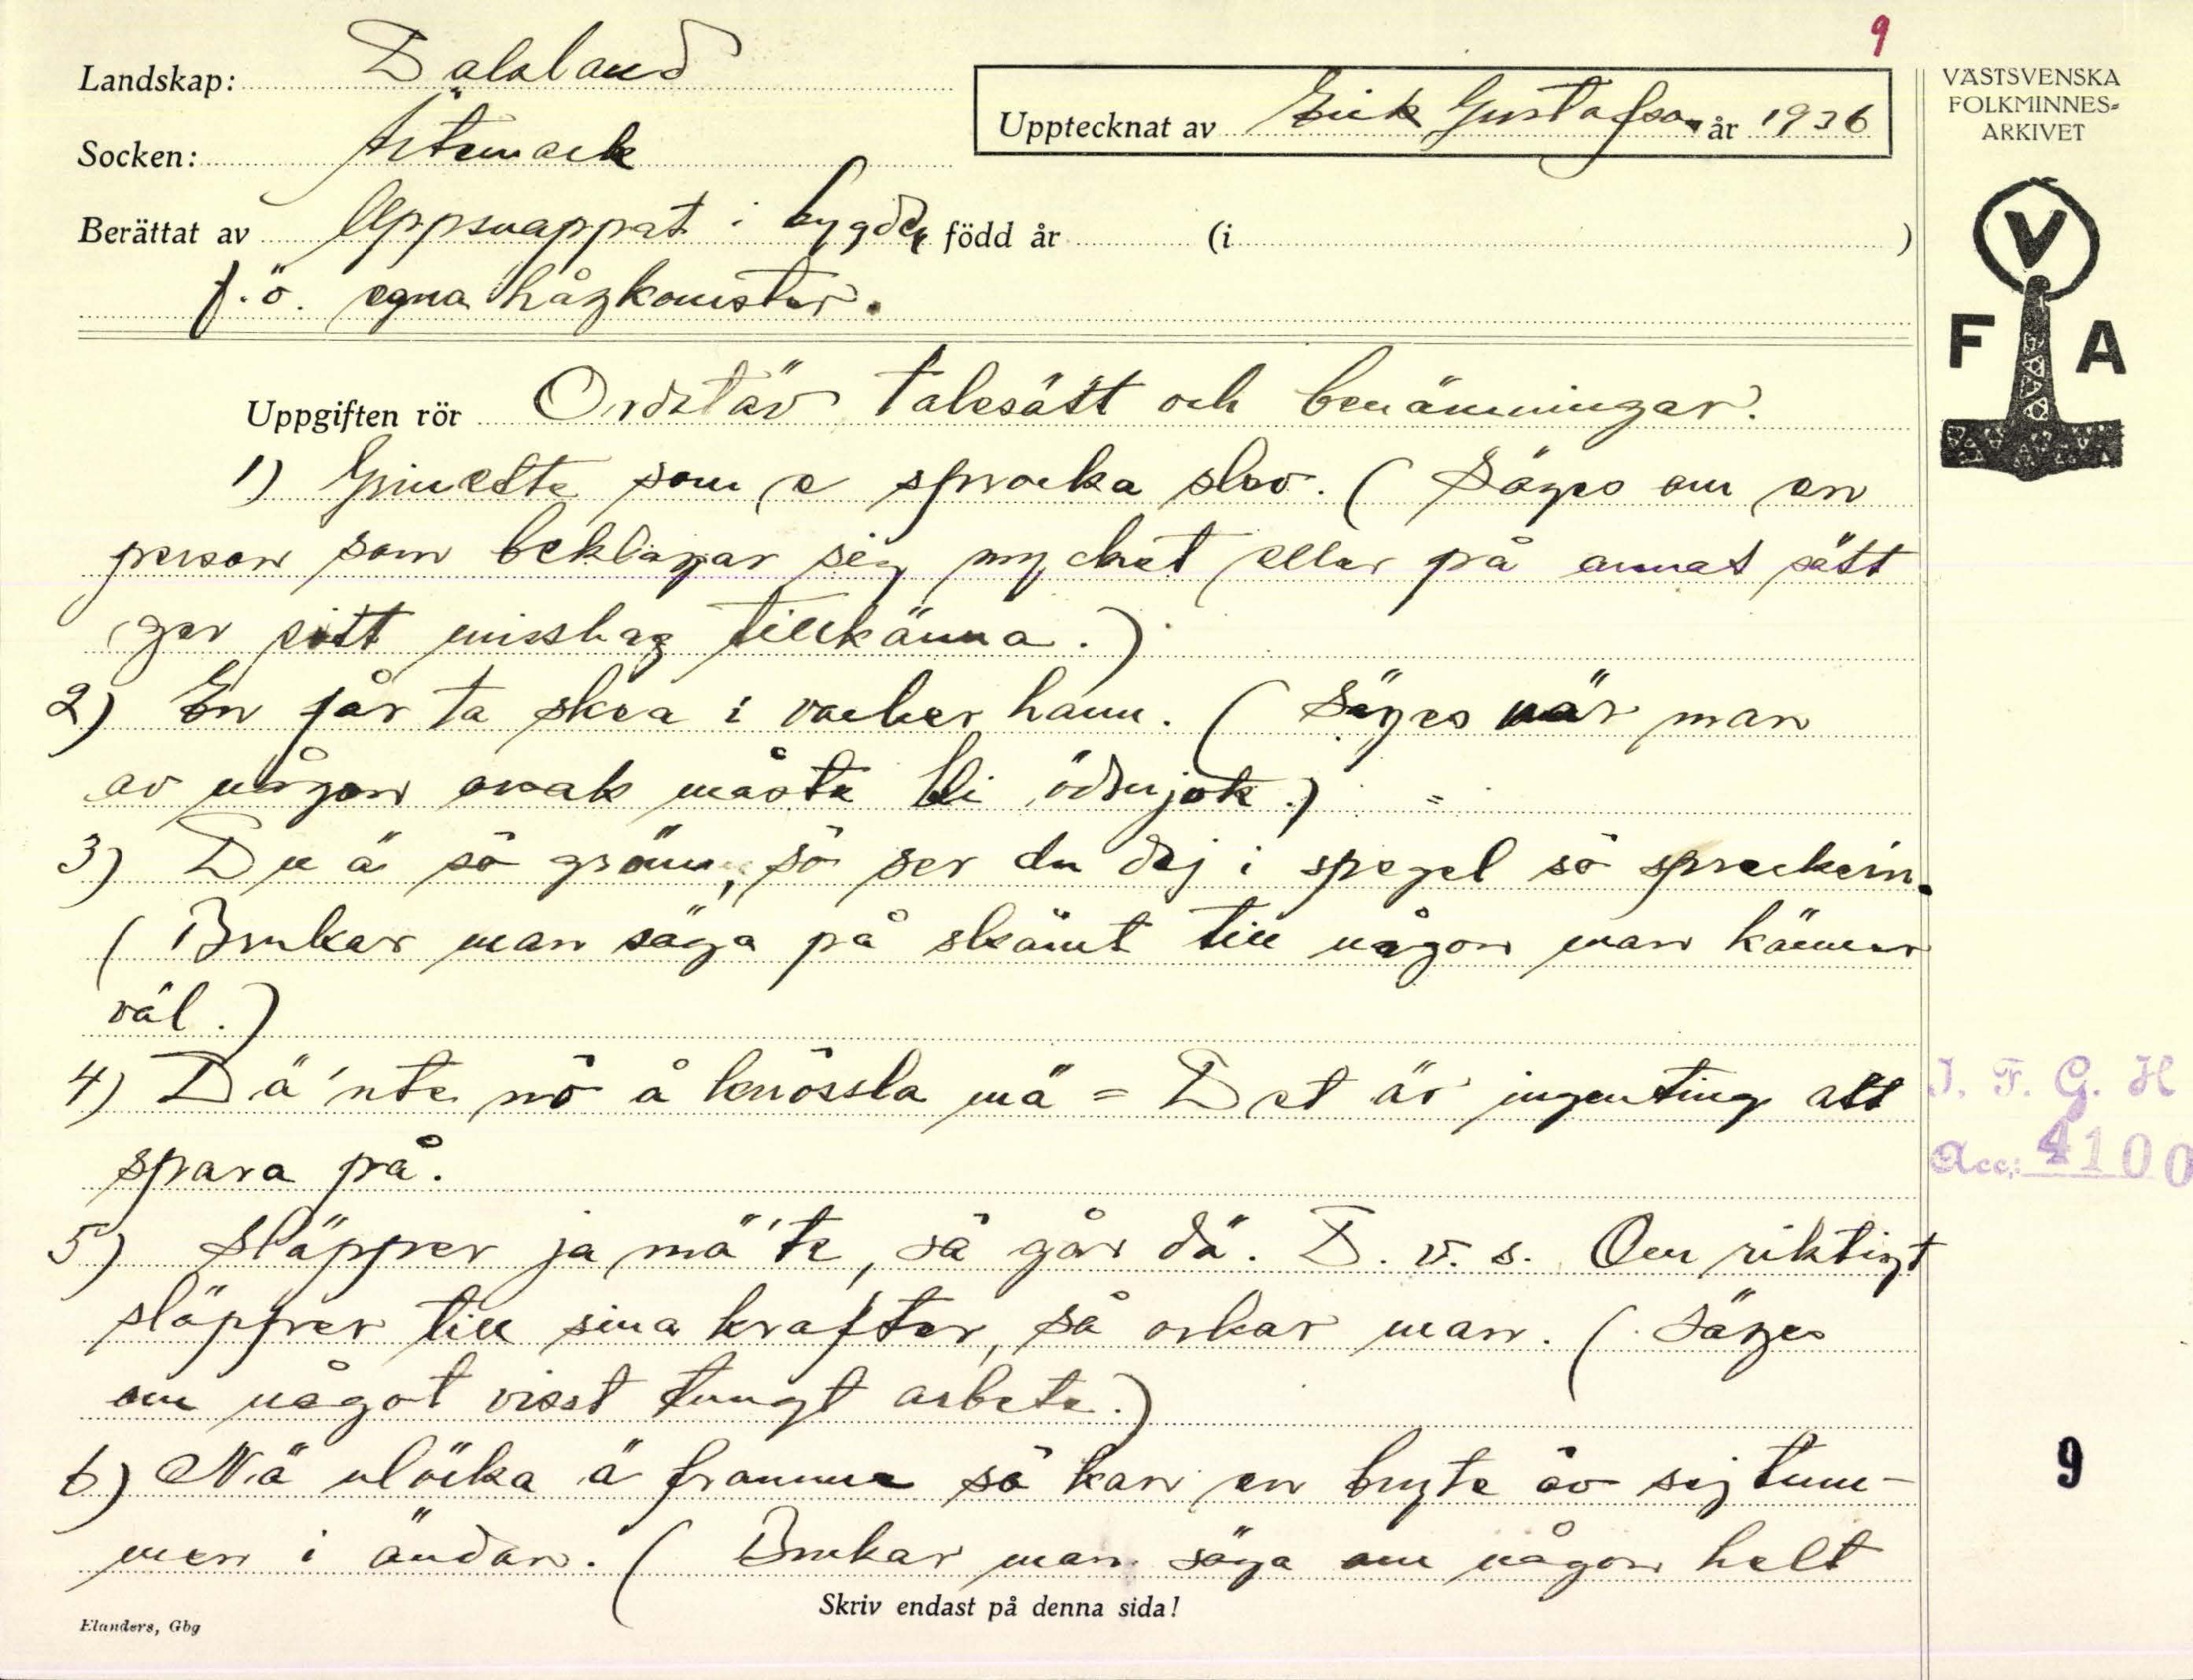 9
Landskap: Dalsland
Socken: Ärtemark
Upptecknat av Erik Gustafson år 1936
Berättat av Uppsnappat i bygden född år (i )
f.ö. egna hågkomster.
VÄSTSVENSKA
FOLKMINNES-
ARKIVET
V
F A
Uppgiften rör Ordstäv talesätt och benämningar.
1) Grinelte som e sprocka slev. (Säges om en
person som beklagar sig mycket eller på annat sätt
ger sitt misshag tillkänna.)
2) En får ta skea i vacker hann. (Säges när man
av någon orsak måste bli ödmjuk.)
3) Du ä sö grönn, sö ser du dej i spegel sö spreckein.
(Brukar man säga på skämt till någon man känner
väl.)
4) Dä 'nte nö å knössla mä = Det är ingenting att
spara på.
5) Släpper ja mä 'te, så går dä. D.v.s. Om riktigt
släpper till sina krafter, så orkar man. (Säges
om något visst tungt arbete.)
6) Nä olöcka ä framme sö kan en bryte åv sej tum-
men i ändan. (Brukar man säga om någon helt
Skriv endast på denna sida!
Elanders, Gbg
I. F. G. H
Acc: 4100
9